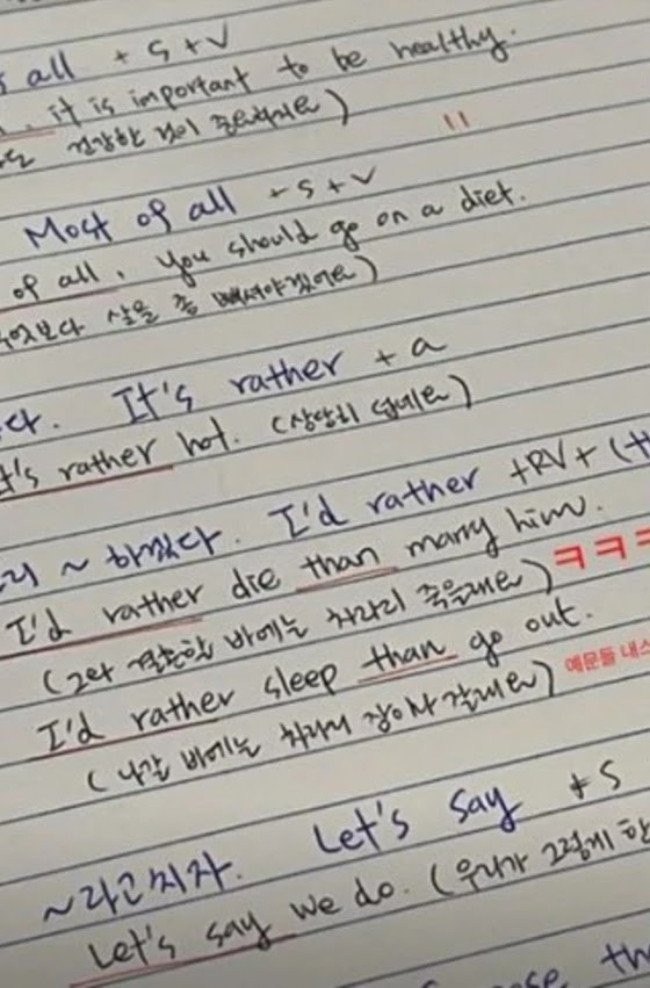 all + S + V
it is important to be healthy.
건강한 것이 중요하지요)
Most of all + S + V
of all, you should go on a diet.
살을 좀 빼셔야겠어요)
It's rather + a
It's rather hot. (상당히 덥네요)
~ 하겠다. I'd rather +RV+ (th
I'd rather die than marry him.
(그와 결혼할 바에는 차라리 죽을래요) ㅋㅋㅋ
I'd rather sleep than go out. 예문들 내스
(나갈 바에는 차라리 잠이나 잘래요)
~라고 치자. Let's say + S
Let's say we do. (우리가 그렇게 한